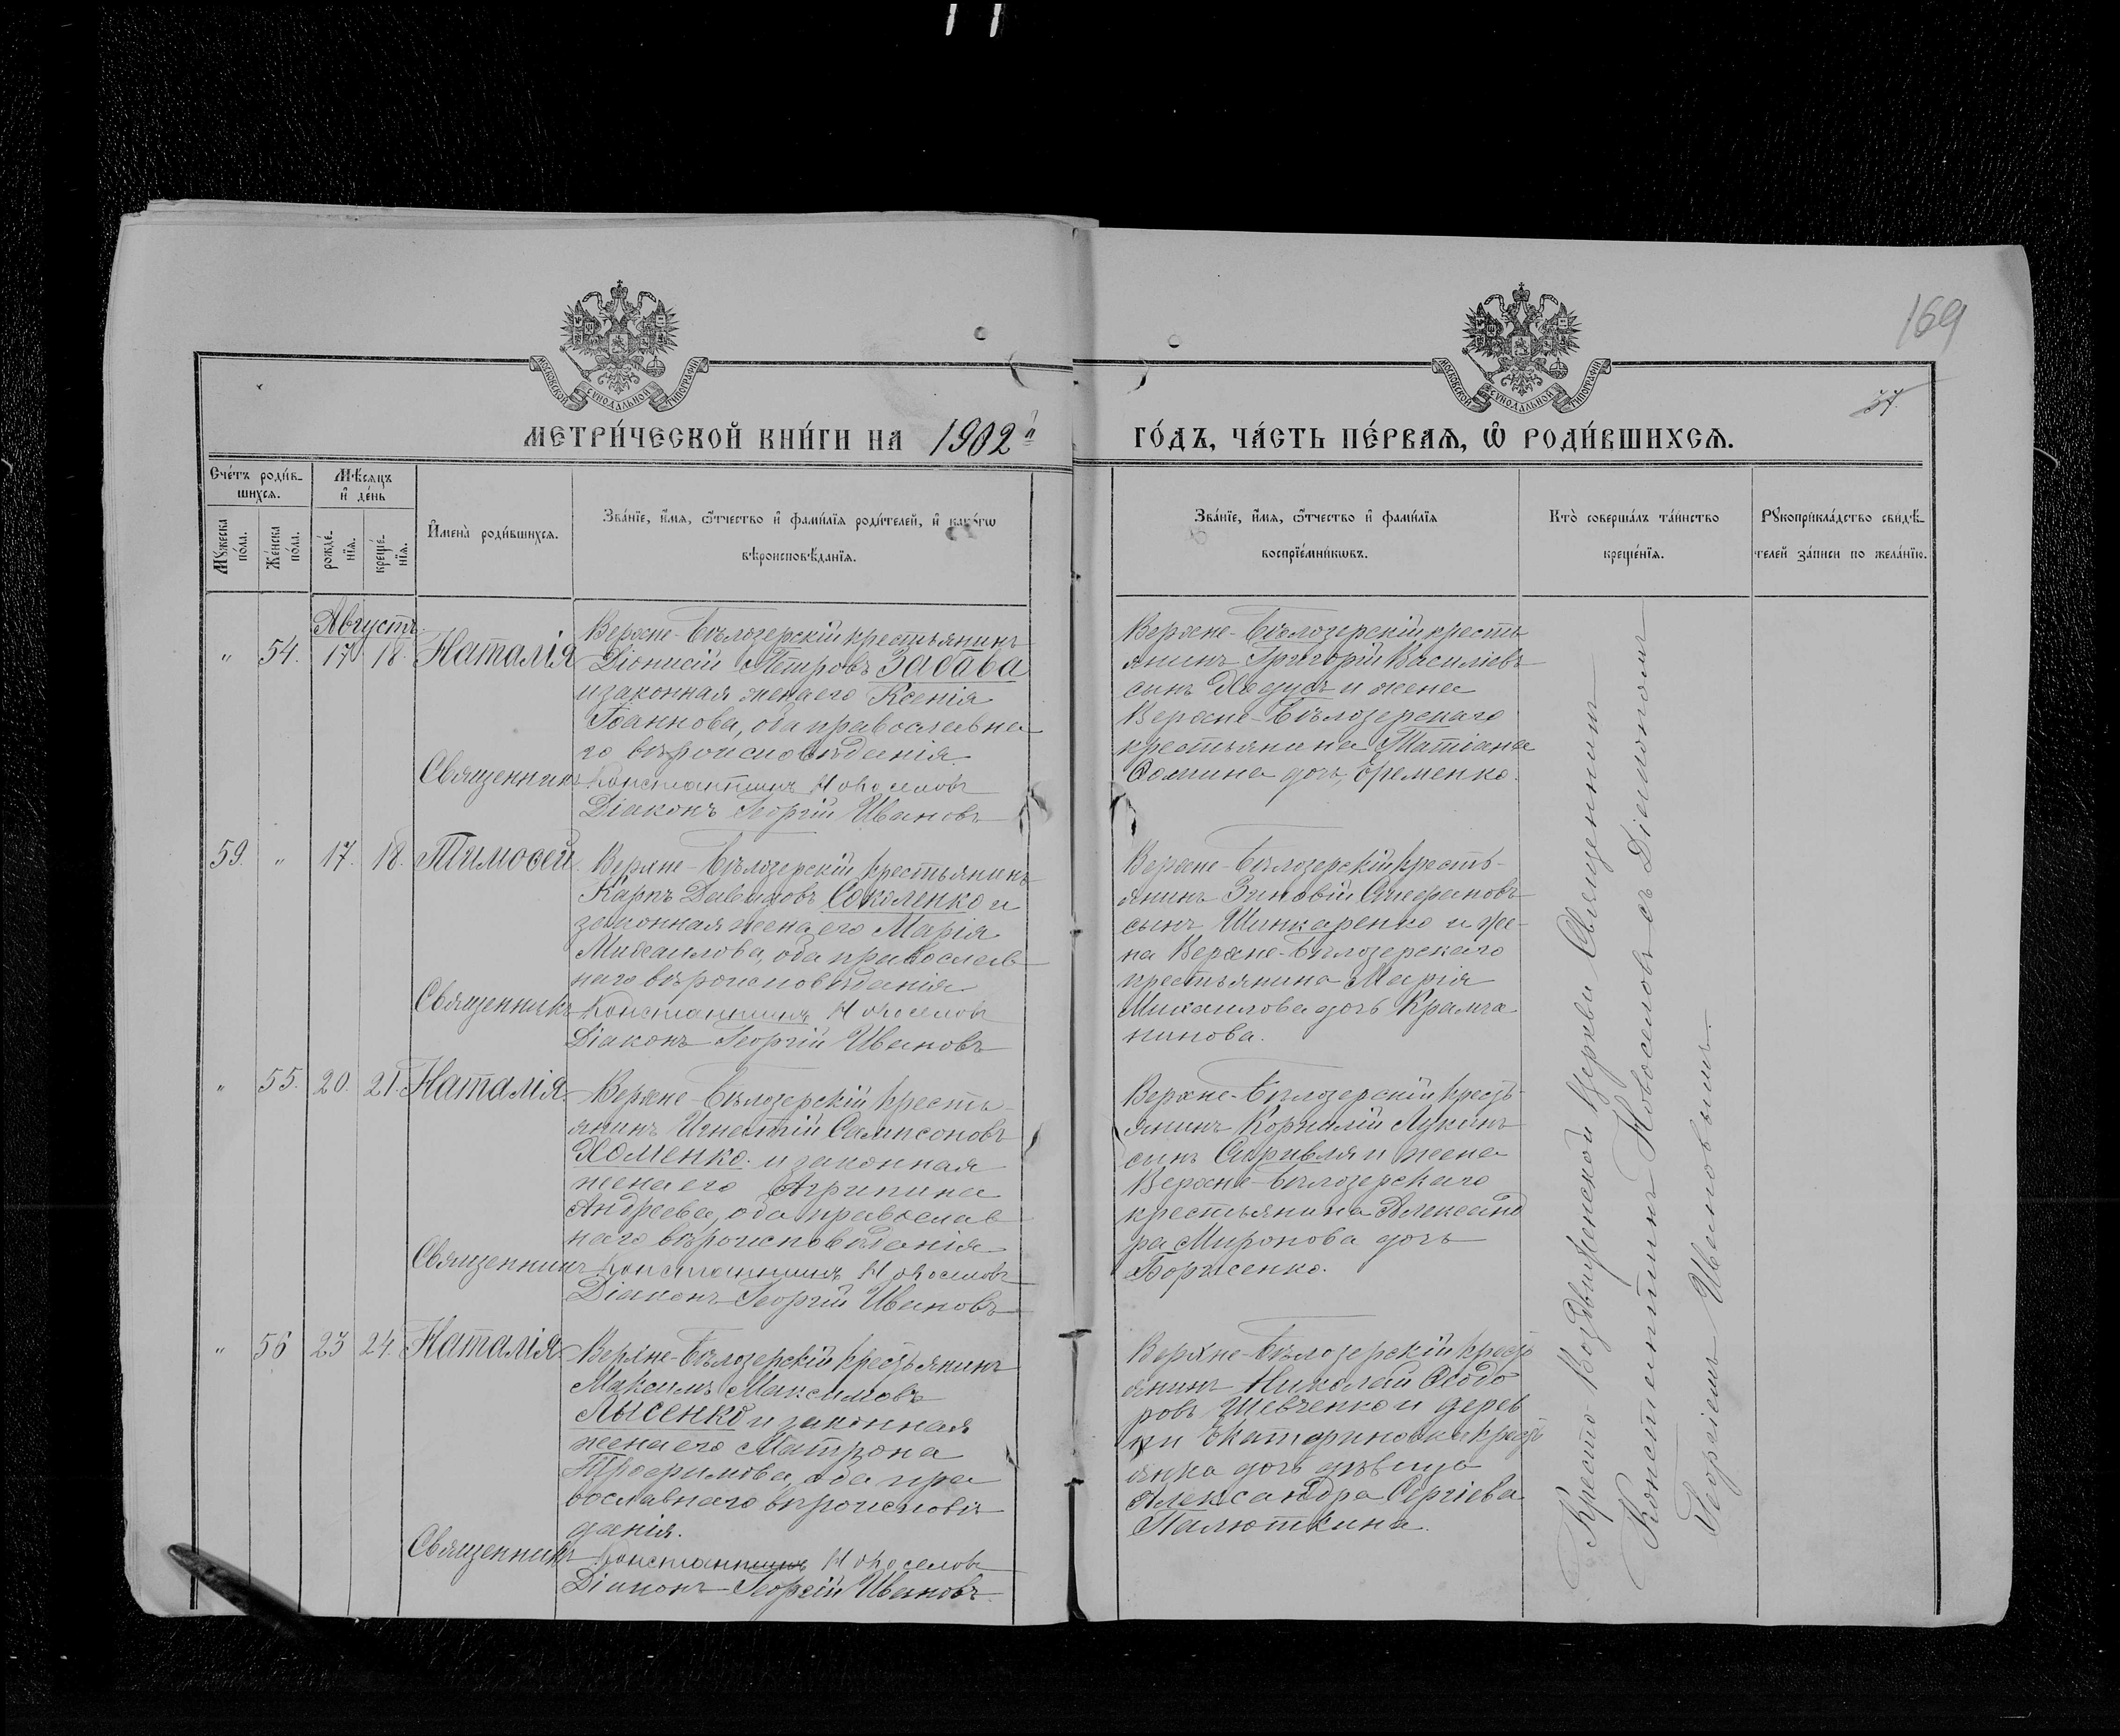 169
37.
МОСКОВСКОЙ СѴНОДАЛЬНОЙ ТИПОГРАФІИ
МОСКОВСКОЙ СѴНОДАЛЬНОЙ ТИПОГРАФІИ
МЕТРИ́ЧЕСКОЙ КНИ́ГИ НА 1902й ГО́ДЪ, ЧА́СТЬ ПЕ́РВАѦ, Ѡ҆ РОДИ́ВШИХСѦ.
Сче́тъ роди́в-
шихсѧ.
Мꙋжеска по́ла.
Же́нска по́ла.
Мѣ́сѧцъ
и҆ де́нь
рожде́-
нїѧ.
креще́-
нїѧ.
И҆мена̀ роди́вшихсѧ.
Зва́нїе, и҆́мѧ, ѻ҆́тчество и҆ фами́лїѧ роди́телей, и҆ како́гѡ
вѣроисповѣ́данїѧ.
Зва́нїе, и҆́мѧ, ѻ҆́тчество и҆ фами́лїѧ
воспрїе́мникѡвъ.
Кто̀ соверша́лъ та́инство
креще́нїѧ.
Рꙋкоприкла́дство свидѣ́-
телей за́писи по жела́нїю.
Августъ
„ 54. 17 18. Наталія
Верхне-Бѣлозерскій крестьянинъ
Діонисій Петровъ Забава
и законная жена его Ксенія
Іоаннова, оба православна
го вѣроисповѣданія.
Священникъ Константинъ Новоселовъ
Діаконъ Георгій Ивановъ
Верхне-Бѣлозерскій кресть
янинъ Григорій Василіевъ
сынъ и жена
Верхне-Бѣлозерскаго
крестьянина Татіана
Ѳомина дочь, Еременко.
59. „ 17. 18. Тимоѳей.
Верхне-Бѣлозерскій крестьянинъ
Карпъ Давидовъ Соколенко и
законная жена его Марія
Михаилова, оба православ
наго вѣроисповѣданія
Священникъ Константинъ Новоселовъ
Діаконъ Георгій Ивановъ
Верхне-Бѣлозерскій кресть-
янинъ Зиновій Стефановъ
сынъ Шинкаренко и же-
на Верхне-Бѣлозерскаго
крестьянина Марія
Михаилова дочь
нинова.
„ 55. 20. 21. Наталія.
Верхне-Бѣлозерскій кресть-
янинъ Игнатій Сампсоновъ
Хоменко и законная
жена его Агрипина
Андреева, оба православ
наго вѣроисповѣданія
Священникъ Константинъ Новоселовъ
Діаконъ Георгій Ивановъ
Верхне-Бѣлозерскій кресть-
янинъ Корнилій Лукинъ
сынъ и жена
Верхне-Бѣлозерскаго
крестьянина Александ
ра Миронова дочь
Борисенко.
„ 56 23 24. Наталія
Верхне-Бѣлозерскій крестьянинъ
Максимъ Максимовъ
Лысенко и законная
жена его Матрона
Трофимова, оба пра
вославнаго вѣроисповѣ
данія.
Священникъ Константинъ Новоселовъ
Діаконъ Георгій Ивановъ
Верхне-Бѣлозерскій кресть
янинъ Николай Ѳеодо
ровъ Шевченко и дерев
ни Екатериновки кресть
янка дочь дѣвица
Александра Сергіева
Палюткина.
Кресто-Воздвиженской Церкви Священникъ
Константинъ Новоселовъ съ Діакономъ
Георгіемъ Ивановымъ